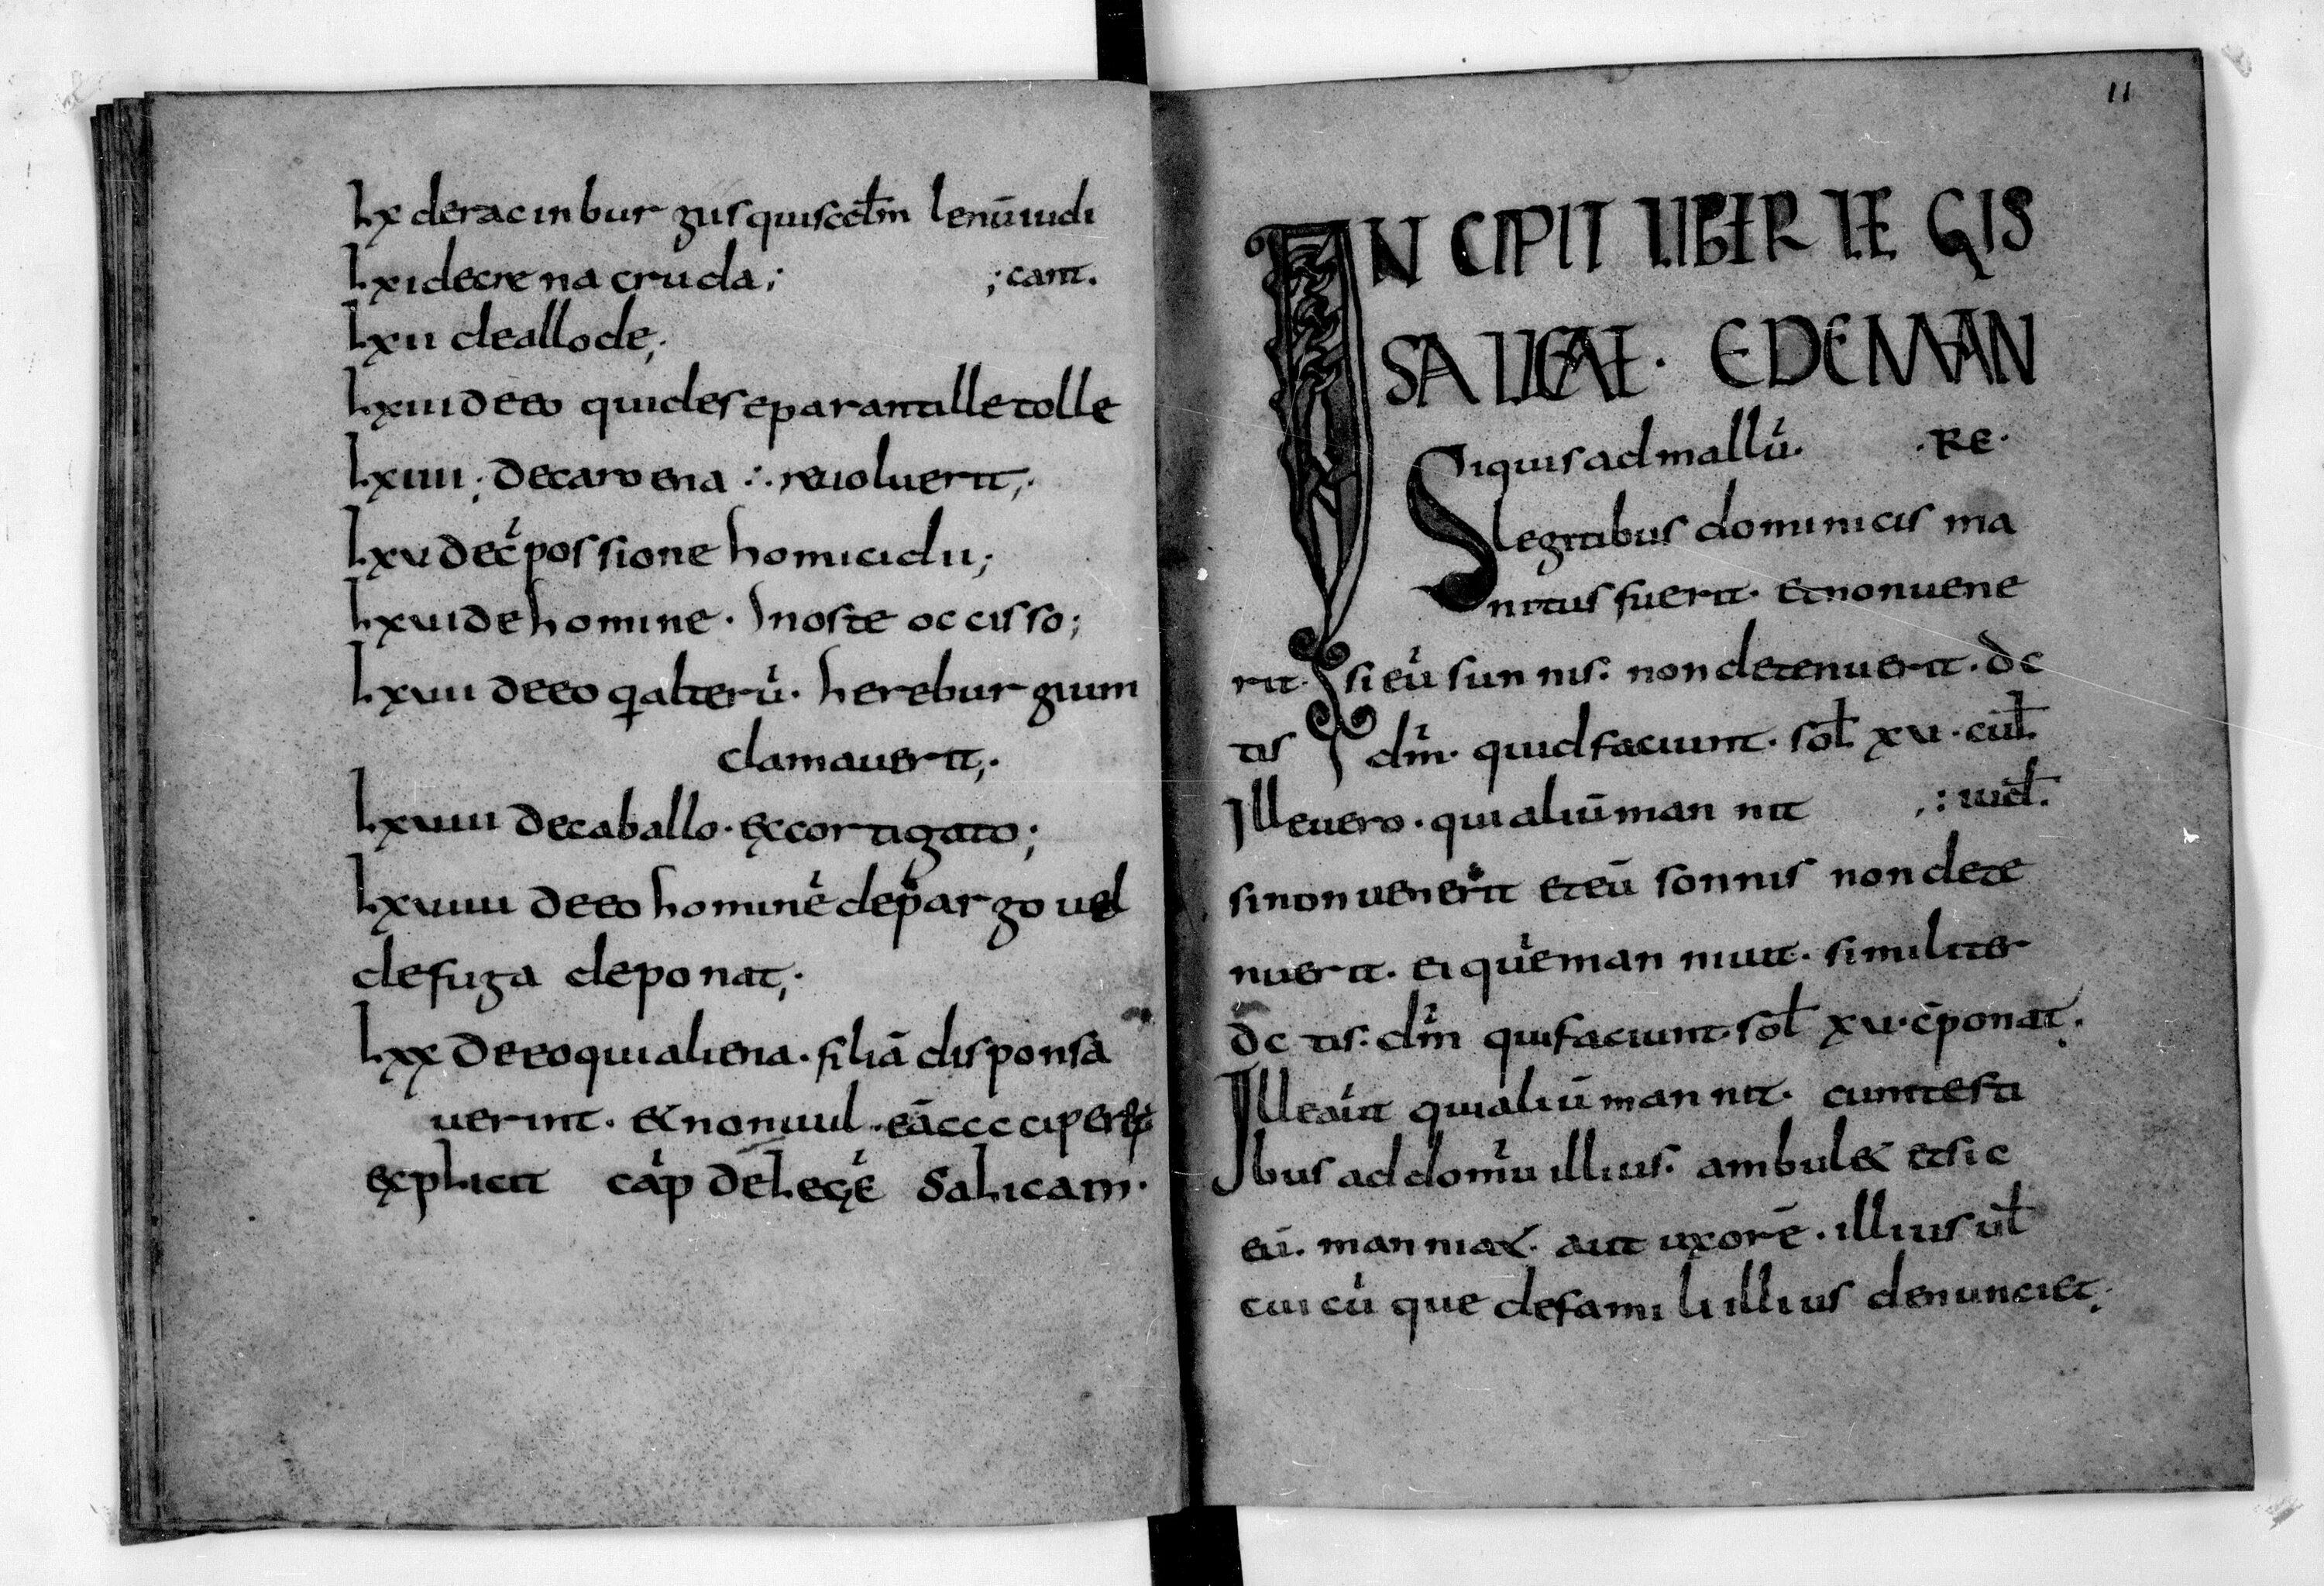 Lx deracinburgiis quiscdm̄ lenū iudi
Lxi decrenacruda; ;cant.
Lxii dealloде;
Lxiii deeo quideseparantilletolle
Lxiiii; decaroena :· reuoluerit;
Lxu dec̄possione homicidii;
Lxui dehomine. Inoste occisso;
Lxuii deeo qalterū. hereburgium
clamauerit;
Lxuiii decaballo. excortigato;
Lxuiiii deeo hominē depargo uel
defuga deponat;
Lxx deeoquialiena. filiā disponsa
uerint. & nonuul. eāccciper&
explicit cap̄ delegē Salicam.
11
INCIPIT LIBER LEGIS
SALICAE. EDEMAN
Siquisadmallū. .RE.
legitibus dominicis ma
nitus fuerit. etnonuene
rit. sieū sunnis. nondetenuerit. dc
tis dm̄. quidfaciunt. sol̄ xu. cul̄
Illeuero. quialiūmannit .:iud̄.
sinonuenerit eteū sonnis nondete
nuerit. ei quēmanniuit. similiter
dc tis. dm̄ quifaciunt. sol̄ xu. c̄ponat.
Illeaūt quialiūmannit. cumtesti
bus addomū illius. ambul& etsic
eū. manniat. aut uxorē. illius ul̄
cuicū que defamiliillius denunciet;